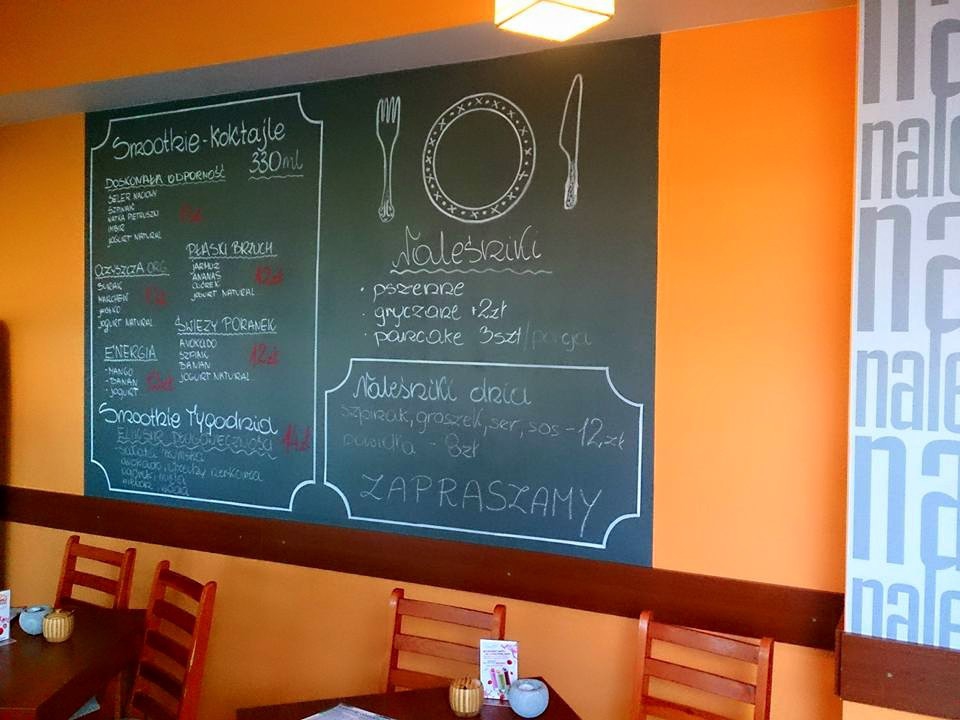 Smootkie - Koktajle
330ml
DOSKONAŁA ODPORNOŚĆ
SELER NACIOWY
SZPINAK
NATKA PIETRUSZKI
IMBIR
JOGURT NATURAL
PŁASKI BRZUCH
JARMUŻ
ANANAS
OGÓREK
JOGURT NATURAL
12zł
OCZYSZCZA ORG.
BURAK
MARCHEW
JABŁKO
JOGURT NATURAL
ŚWIEŻY PORANEK
AVOKADO
SZPINAK
BANAN
JOGURT NATURAL
12zł
ENERGIA
- MANGO
- BANAN
- JOGURT
Smootkie Tygodnia
14zł
ELIKSIR DŁUGOWIECZNOŚCI
Naleśniki
• pszenne
• gryczane +2zł
• pancake 3szt/porcja
Naleśniki dnia
szpinak, groszek, ser, sos - 12,zł
powidła - 8zł
ZAPRASZAMY
na
nale
na
nale
na
nale